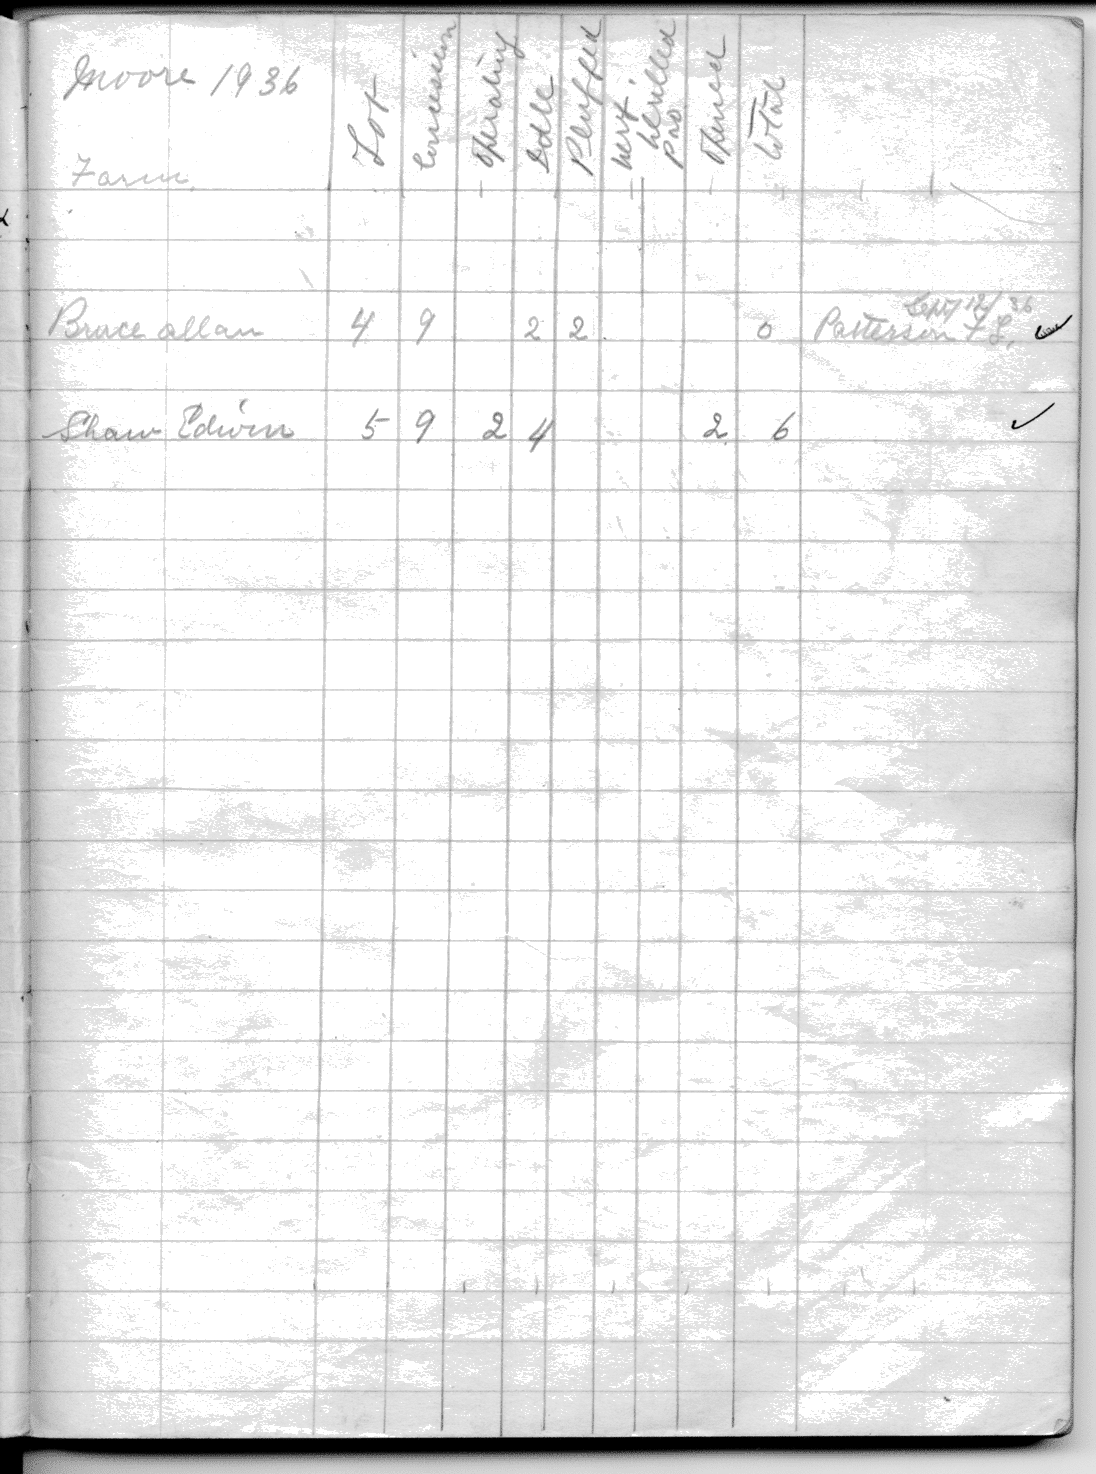 Moore 1936
Farm
Lot
Concession
operating
Idle
Plugged
Drilled
Pro
opened
total
Sept 12/36
Bruce Allan 4 9 2 2 0 Patterson F S.
Shaw Edwin 5 9 2 4 2 6